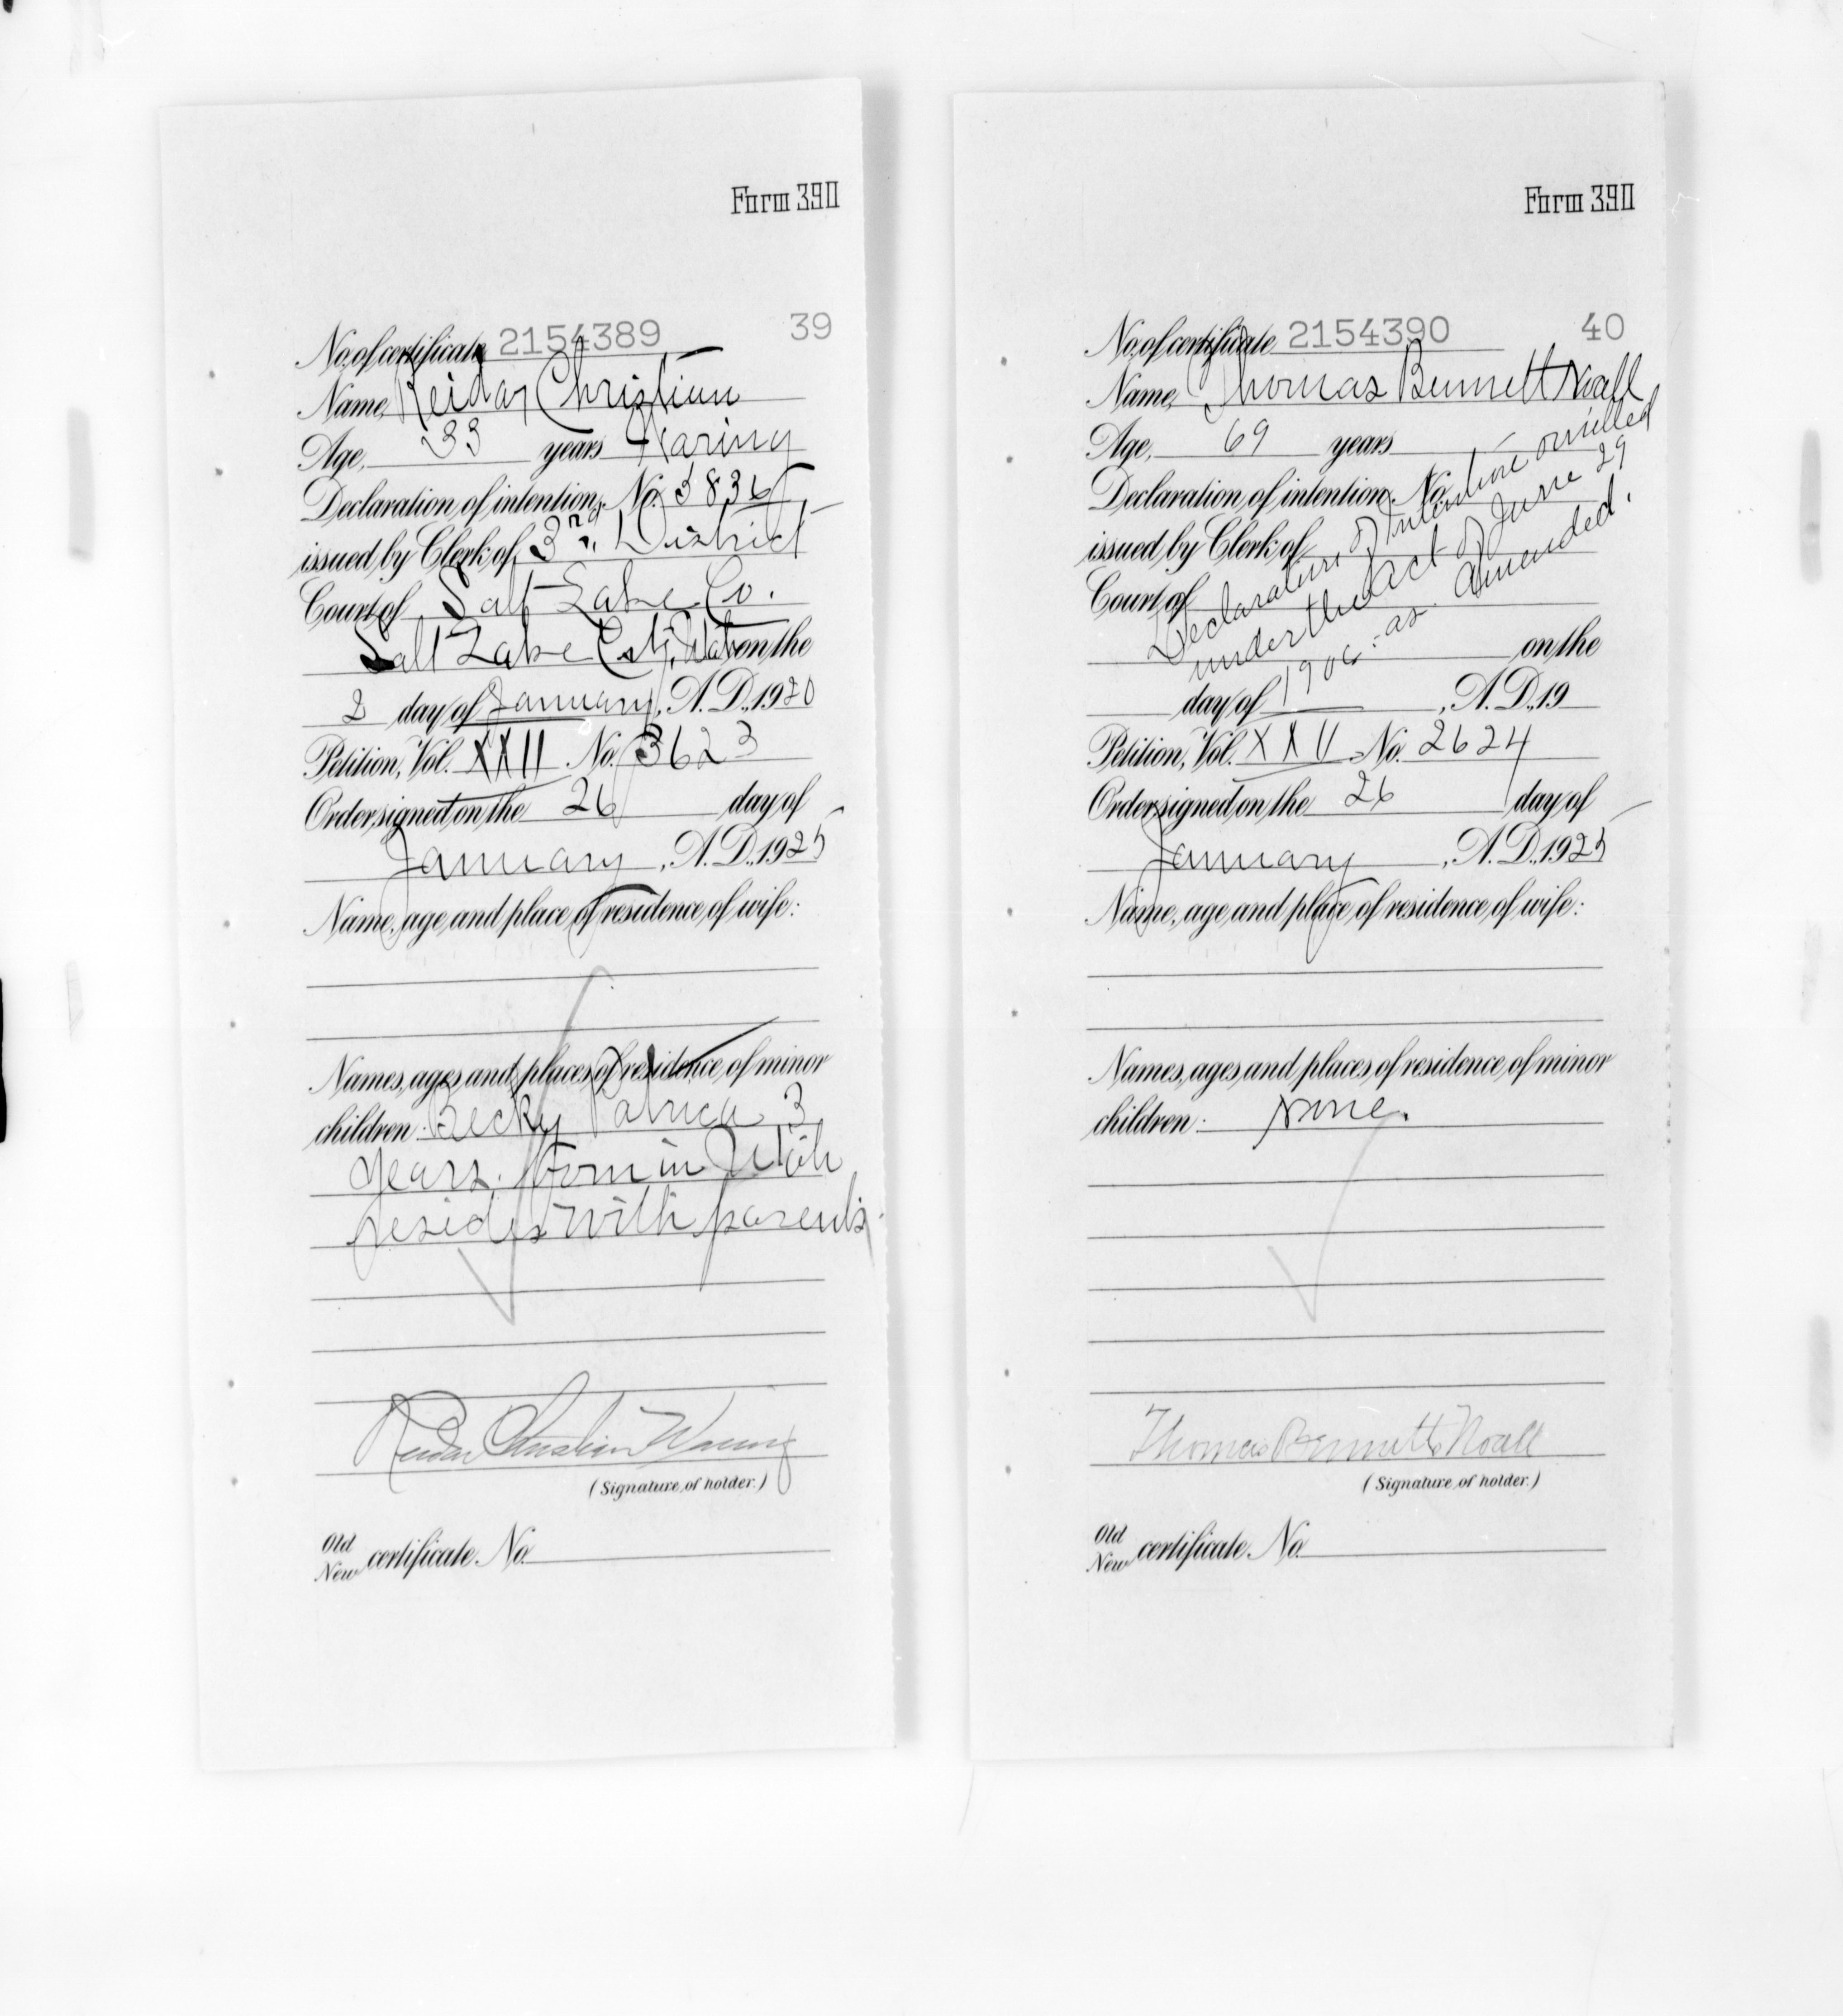 Form 390
No. of certificate 2154389 39
Name, Reidar Christian
Age, 33 years Waring
Declaration of intention, No. 3836
issued by Clerk of 3rd District
Court of Salt Lake Co.
Salt Lake City, Utah on the
2 day of January, A. D., 1920
Petition, Vol. XXII No. 3623
Order signed on the 26 day of
January, A. D., 1925
Name, age and place of residence of wife:
Names, ages and places of residence of minor
children: Becky Patrica 3
years. born in Utah
resides with parents.
Reidar Christian Waring
(Signature of holder.)
Old
New certificate No.
Form 390
No. of certificate 2154390 40
Name, Thomas Bennett Noall
Age, 69 years
Declaration of intention, No.
issued by Clerk of
Court of
on the
day of , A. D., 19
Declaration of Intention omitted
under the act of June 29
1906 - as amended.
Petition, Vol. XXII No. 2624
Order signed on the 26 day of
January, A. D., 1925
Name, age and place of residence of wife:
Names, ages and places of residence of minor
children: None.
Thomas Bennett Noall
(Signature of holder.)
Old
New certificate No.